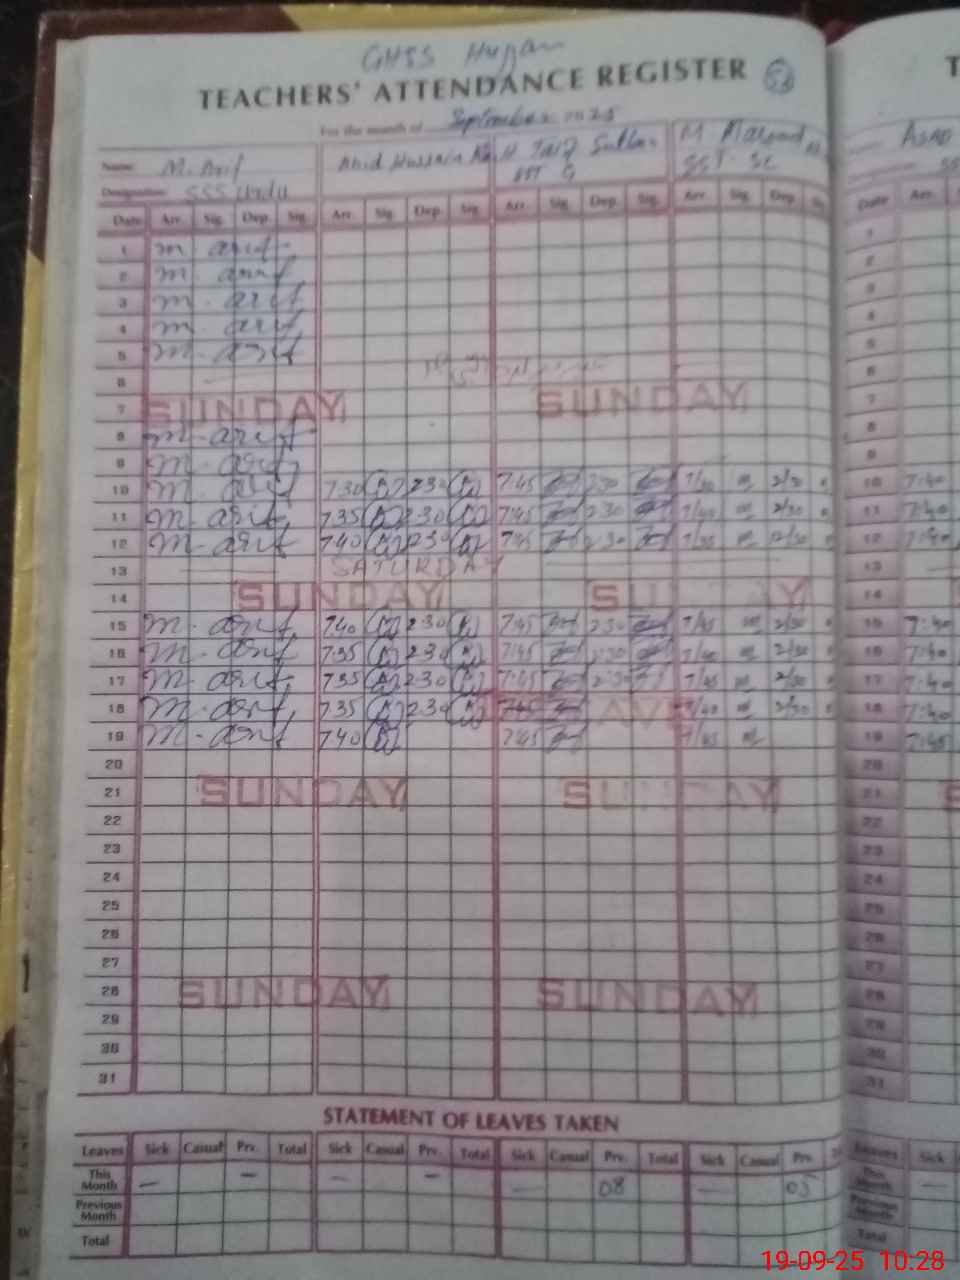 GHSS
TEACHERS' ATTENDANCE REGISTER
For the month of September 2025
Name M. Arif Abid Hussain Tariq M
Designation SSS Urdu SST SC
Date Arr. Sig. Dep. Sig. Arr. Sig. Dep. Sig. Arr. Sig. Dep. Sig. Arr. Sig. Dep. Date Arr.
1 m arif 1
2 m arif 2
3 m. arif 3
4 m. arif 4
5 m. arif 5
6 6
7 SUNDAY SUNDAY 7
8 m. arif 8
9 m. arif 9
10 m. arif 7:30 2:30 7:45 2:30 7/30 2/30 10 7:40
11 m. arif 7:35 2:30 7:45 2:30 7/40 2/30 11 7:40
12 m. arif 7:40 2:30 7:45 2:30 7/30 2/30 12 7:40
13 SATURDAY 13
14 SUNDAY SUNDAY 14
15 m. arif 7:40 2:30 7:45 2:30 7/45 2/30 15 7:40
16 m. arif 7:35 2:30 7:45 2:30 7/40 2/30 16 7:40
17 m. arif 7:35 2:30 7:45 2:30 7/45 2/30 17 7:40
18 m. arif 7:35 2:30 7:45 LEAVE 7/40 2/30 18 7:40
19 m. arif 7:40 7:45 7/45 19 7:45
20 20
21 SUNDAY SUNDAY 21
22 22
23 23
24 24
25 25
26 26
27 27
28 SUNDAY SUNDAY 28
29 29
30 30
31 31
STATEMENT OF LEAVES TAKEN
Leaves Sick Casual Prv. Total Sick Casual Prv. Total Sick Casual Prv. Total Sick Casual Prv. Leaves Sick
This Month — — — — — 08 — 05 This Month —
Previous Month Previous Month
Total Total
19-09-25 10:28